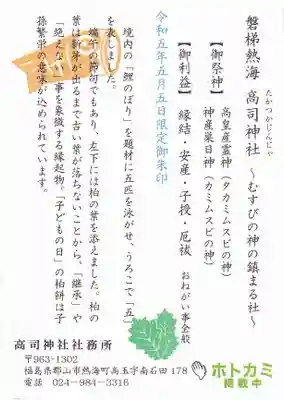 磐梯熱海 高司神社 ～むすびの神の鎮まる社～
たかつかじんじゃ
【御祭神】 高皇産霊神(タカミムスビの神)
神産巣日神(カミムスビの神)
【御利益】 縁結・安産・子授・厄祓 おねがい事全般
令和五年五月五日限定御朱印
境内の「鯉のぼり」を題材に五匹を泳がせ、うろこで「五」
を表しました。
端午の節句でもあり、左下には柏の葉を添えました。柏の
葉は新芽が出るまで古い葉が落ちないことから、「継承」や
「絶えない」事を象徴する縁起物。「子どもの日」の柏餅は子
孫繁栄の意味が込められています。
高司神社社務所
〒963-1302
福島県郡山市熱海町高玉字南石田178
電話 024-984-3316
ホトカミ
掲載中